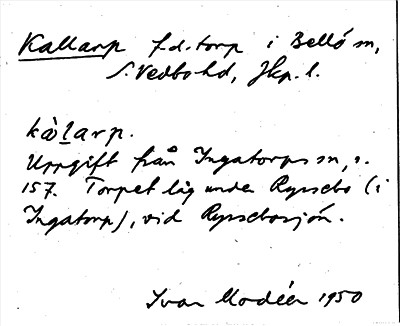 Kallarp f.d. torp i Bellö sn,
S. Vedbo hd, Jkp. l.
kàlarp.
Uppgift från Ingatorps sn, s.
157. Torpet låg under Ryssebo (i
Ingatorp), vid Ryssebosjön.
Ivar Modéer 1950